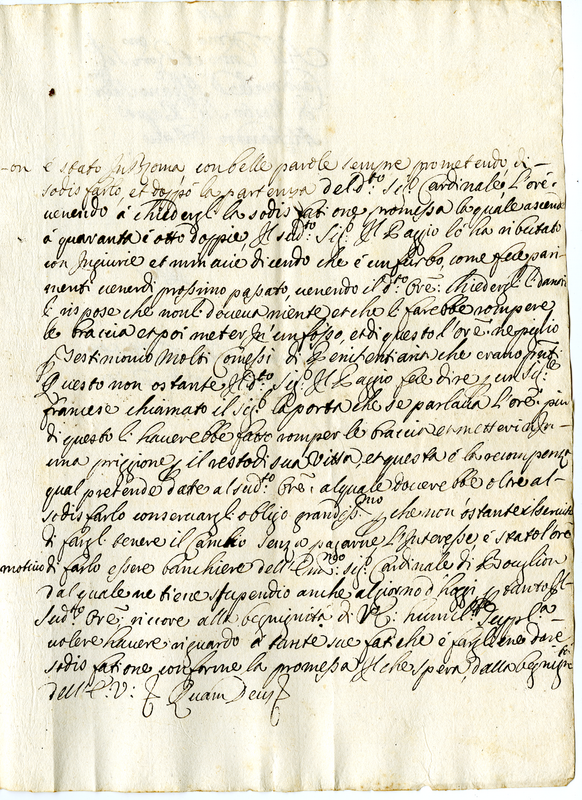 -on e stato In Roma con belle parole sempre prometendo di
sodisfarlo et doppo la partenza del d.to Sig. Cardinale L'ore.
venendo á Chiederglí la sodisfatione promessa la quale ascende
á quaranta é otto doppie Il sud.to Sig. Il Paggio lo ha ributato
con Ingiurie et minacie dicendo che é un furbo, come fece pari
menti venerdi prossimo passato, venendo il d.to Ore. Chiedergli danari
li rispose che non li doveva niente et che li farebbe rompere
le braccia et poi meter In un fosso, et di questo l'ore. ne piglio
Testimonio Molti Comessi di Penitentiaria che erano pnti
Questo non ostante Il d.to Sig. Il Paggio fece dire p un Sig.
francese chiamato il Sig. la porta che se parlava L'ore. piu
di questo li haverebbe fatto romper le braccia et metter in
una priggione p il resto di sua Vitta, et questa é la recompenza
qual pretende dare al sud.to Ore. al quale doverebbe oltre al
sodisfarlo conservargli obligo grandiss.mo p che non ostante il servitio
di fargli tenere il senza pagarne L'Interesse é stato l'ore
motivo di farlo essere banchiere dell' Em.mo Sig. Cardinale di Bouglion
dal quale ne tiene stipendio anche al giorno d'hoggi p tanto Il
sud.to Ore. ricore alla begnignità di V. humil.te Supp.la
volere havere riguardo á tante sue fatiche é fargliene dare
sodisfatione conforme la promessa Il che spera dalla begnig.tà
dell' E. V: Quam Deus